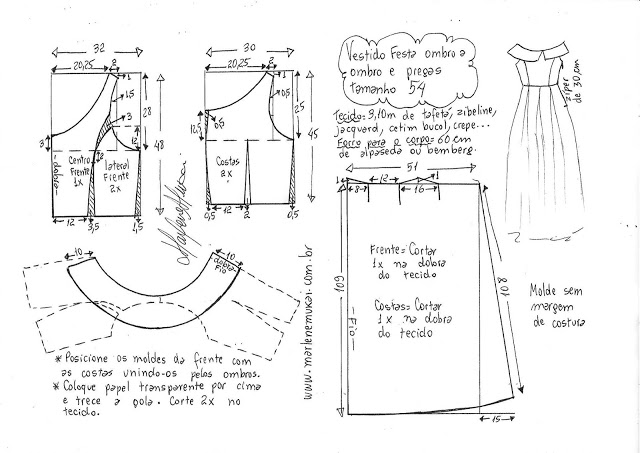 Vestido Festa ombro a
ombro e pregas
tamanho 54
Tecido: 3,10m de tafetá, zibeline,
jacquard, cetim bucol, crepe...
Forro para o corpo = 60 cm
de alpaseda ou bemberg.
ziper
de 30,cm
32
20,25
2
1
1,5
3
28
48
12
3
2
-dobra-
Centro
Frente
1x
lateral
Frente
2x
12
3,5
1,5
30
20,25
2
1
0,5
25
45
12,5
0,5
Costas
2x
12
0,5
2
0,5
Marlene Mukai
www.marlenemukai.com.br
10
10
dobra
Fio
* Posicione os moldes da frente com
as costas unindo-os pelos ombros.
* Coloque papel transparente por cima
e trece a gola. Corte 2x no
tecido.
51
1
8
12
16
1
109
108
-Fio-
Frente = Cortar
1x na dobra
do tecido
Costas = Cortar
1x na dobra
do tecido
15
Molde sem
margem
de costura